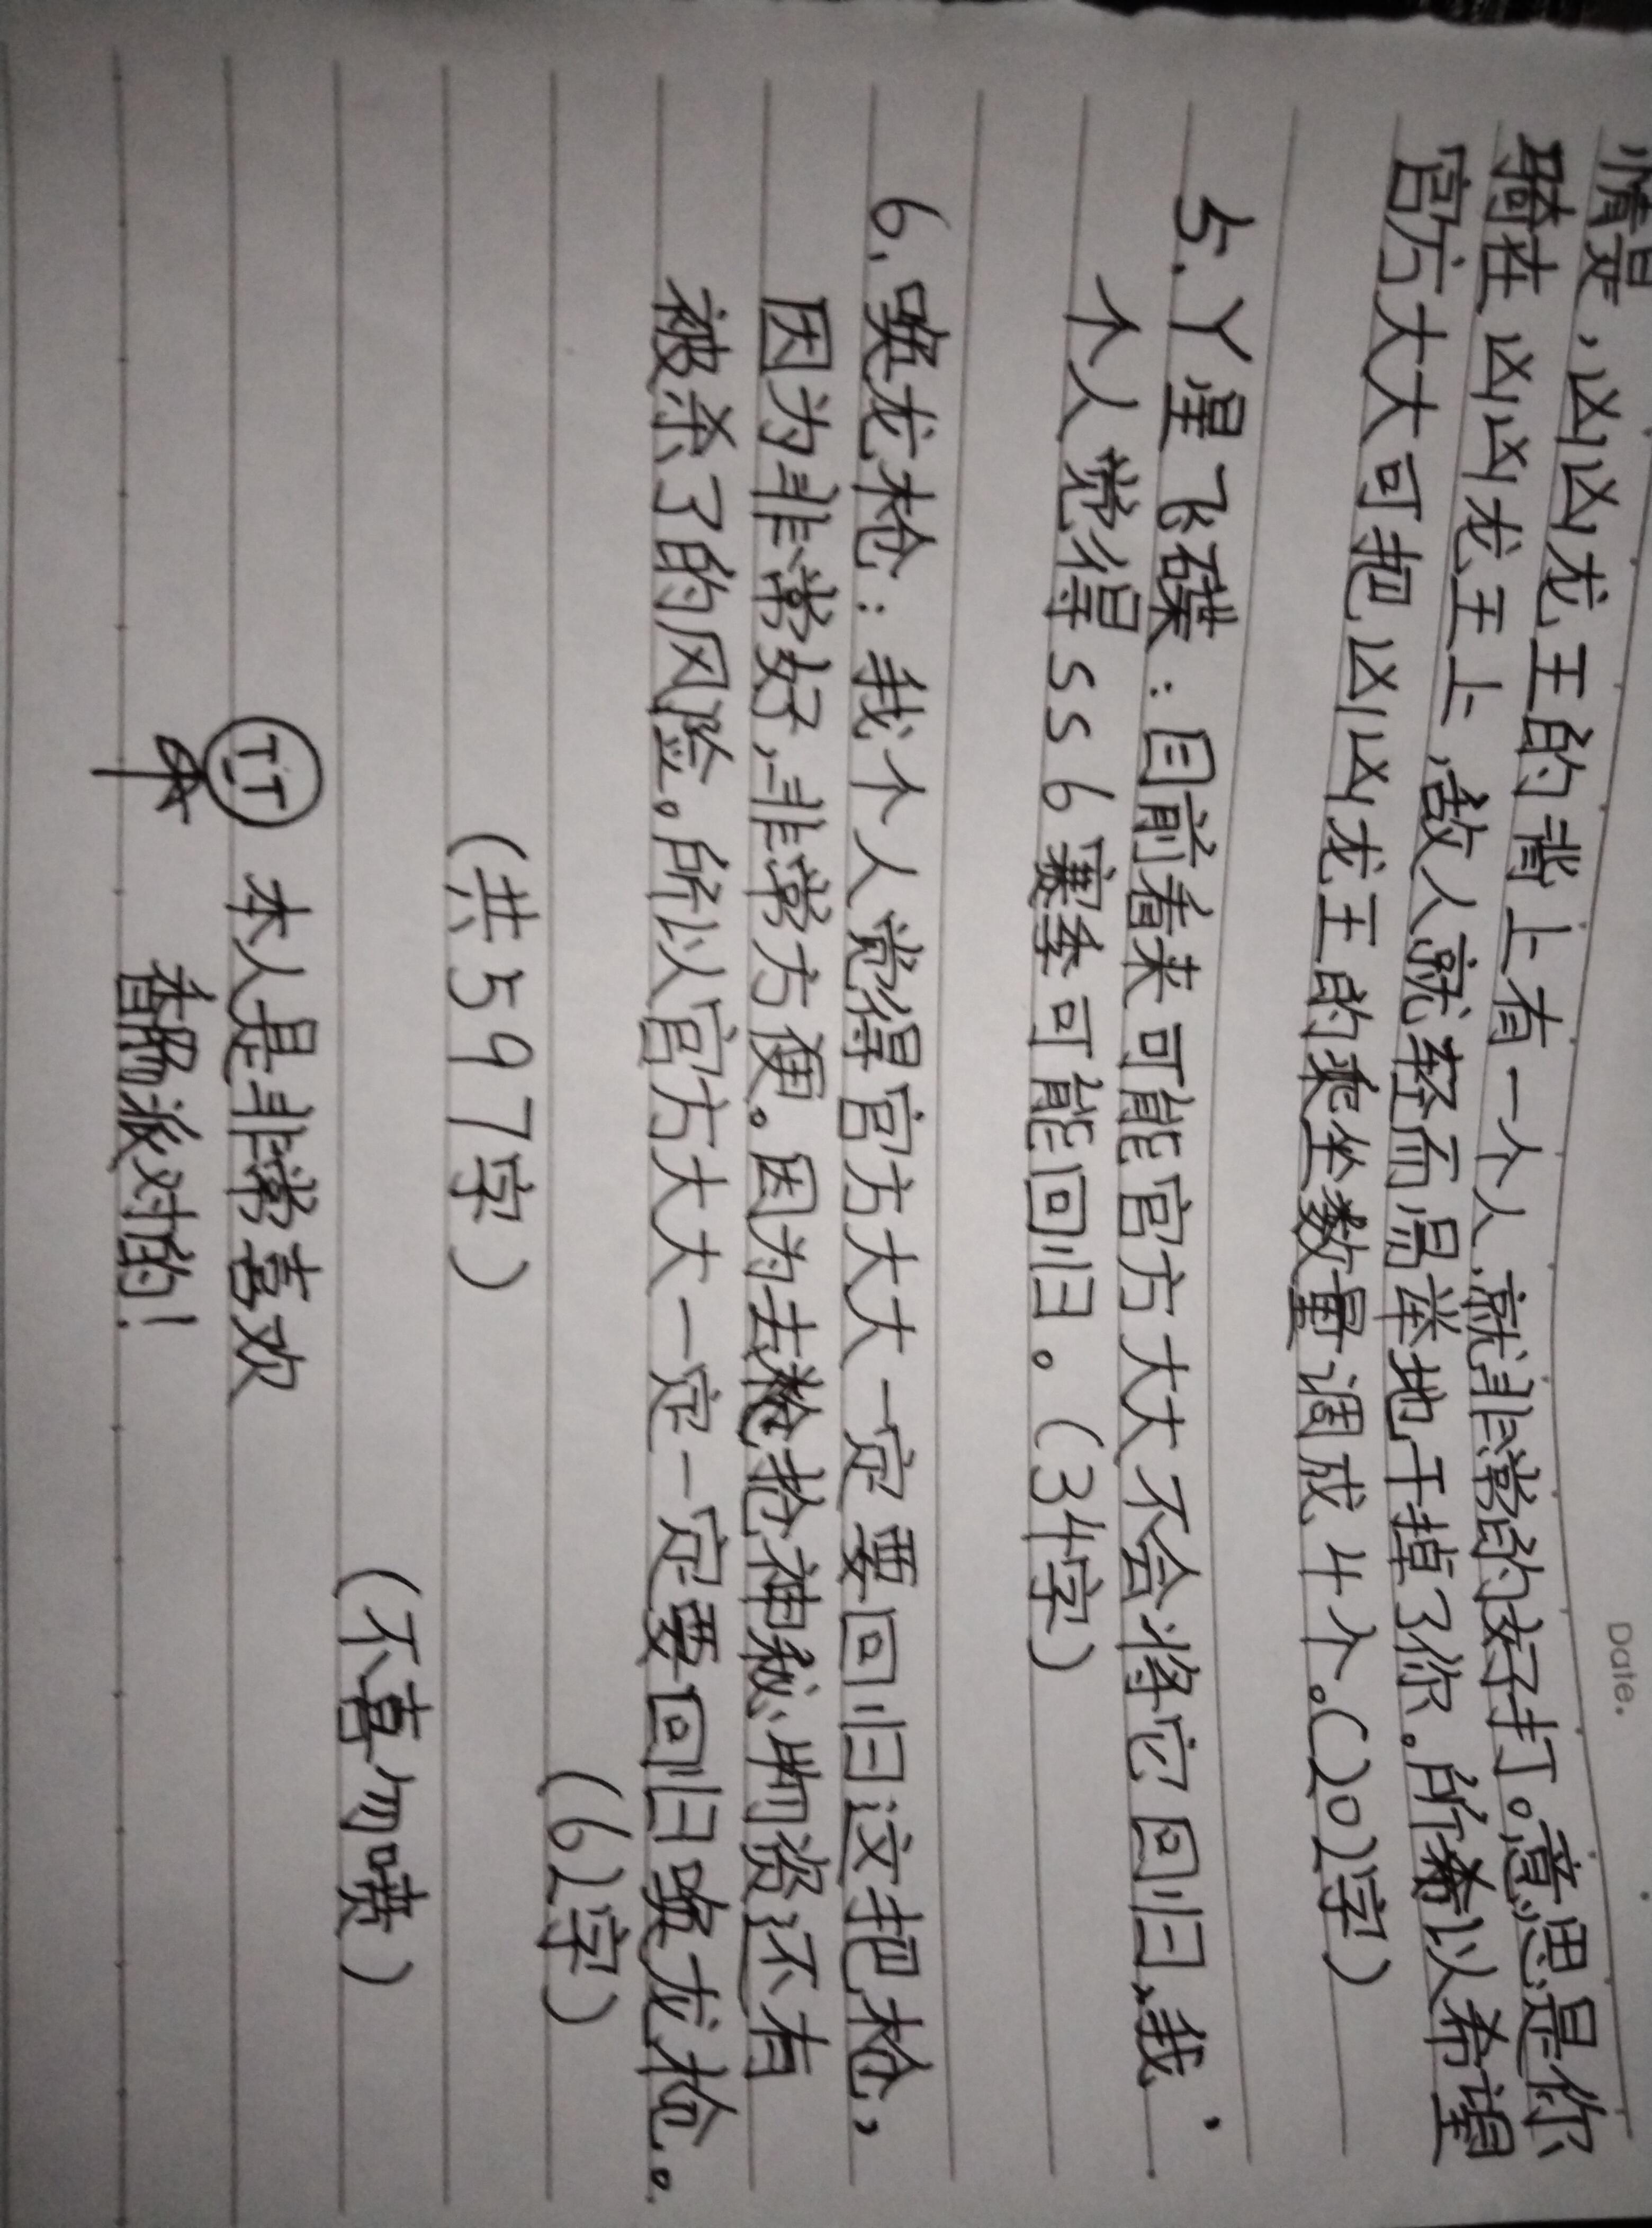 Date.
情是，凶凶龙王的背上有一个人，就非常的好打。意思是你
骑在凶凶龙王上，敌人就轻而易举地干掉了你。所以希望
官方大大可把凶凶龙王的乘坐数量调成4个。(202字)
5.丫星飞碟：目前看来可能官方大大不会将它回归，我
个人觉得ss6赛季可能回归。(34字)
6.唤龙枪：我个人觉得官方大大一定要回归这把枪，
因为非常好，非常方便。因为去抢神秘物资还有
被杀了的风险。所以官方大大一定一定要回归唤龙枪。
(62字)
(共597字)
(不喜勿喷)
本人是非常喜欢
香肠派对的！